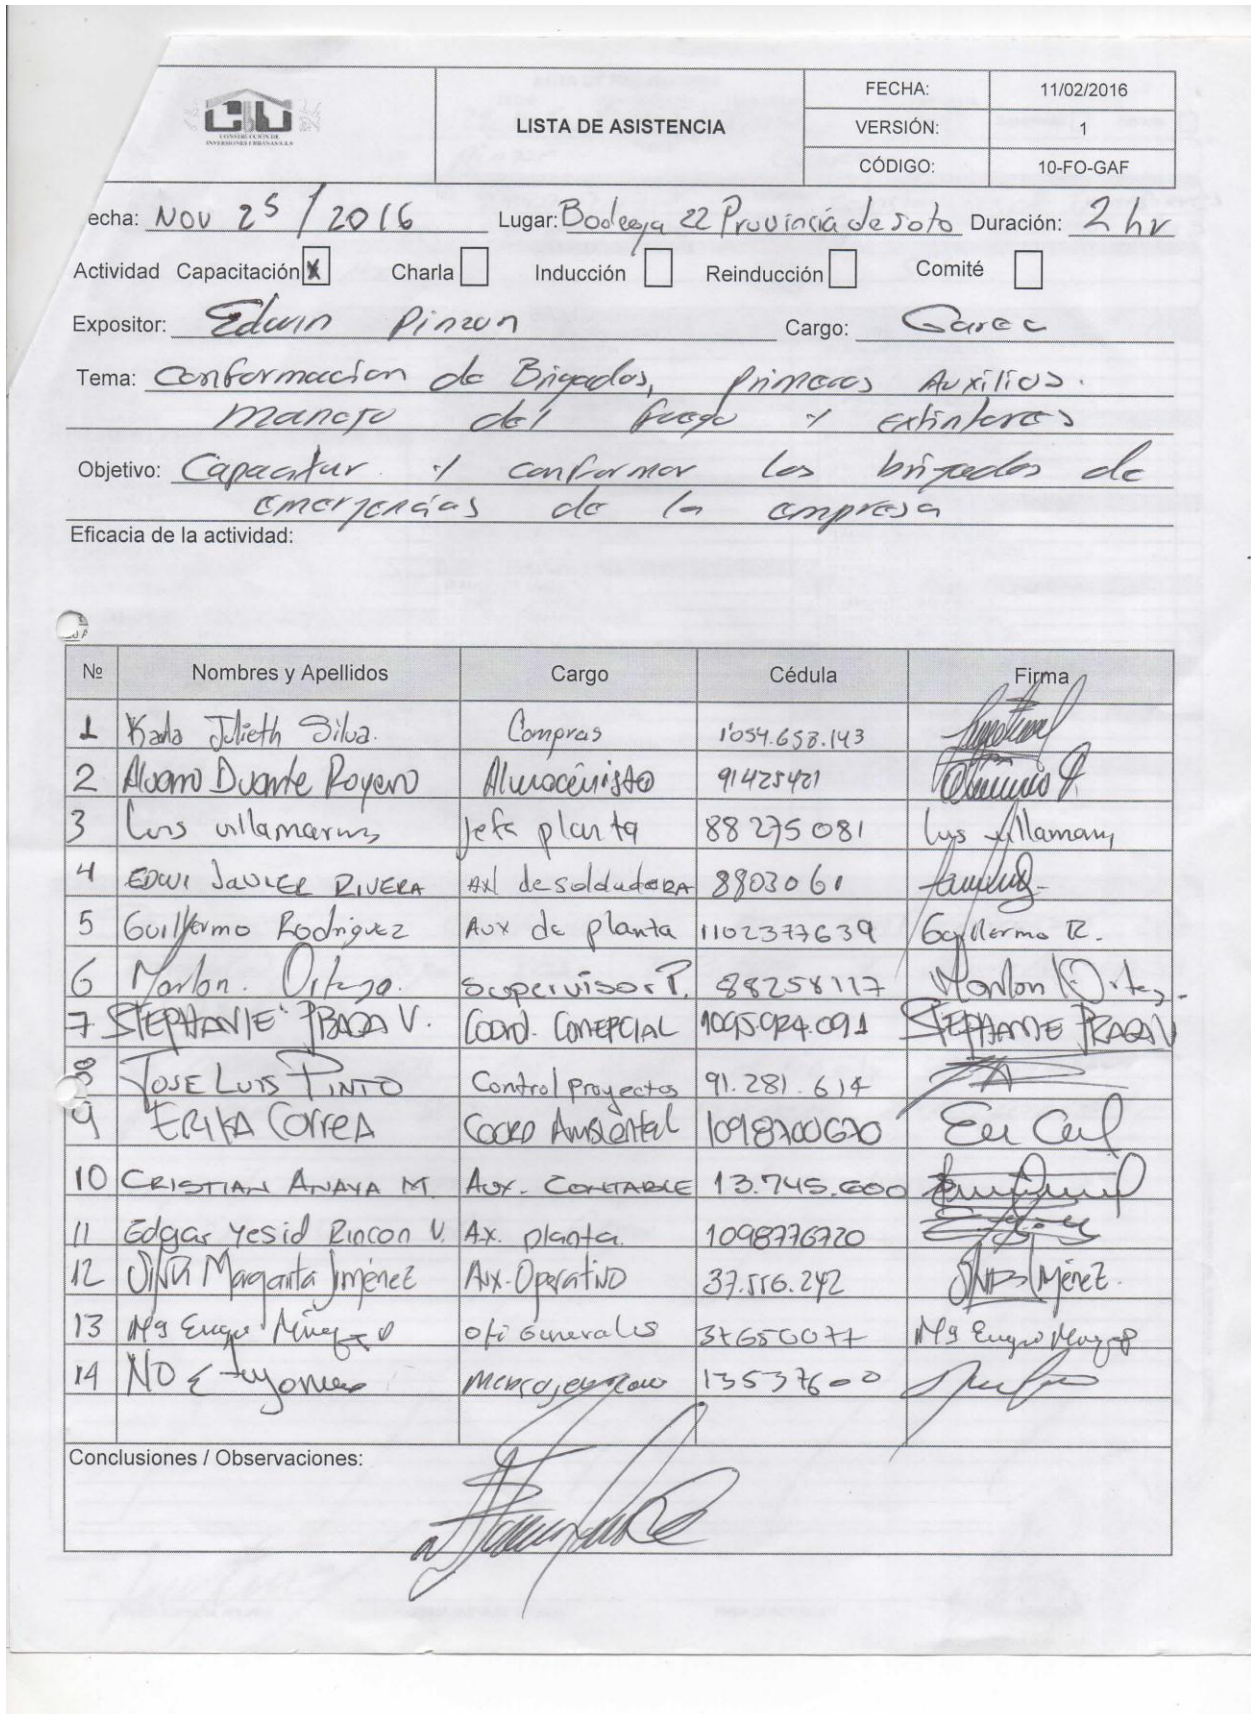 CIU
CONSTRUCCIÓN DE
INVERSIONES URBANAS S.A.S
LISTA DE ASISTENCIA
FECHA: 11/02/2016
VERSIÓN: 1
CÓDIGO: 10-FO-GAF
echa: Nov 25/2016 Lugar: Bodega 22 Provincia de Soto Duración: 2 hr
Actividad Capacitación X Charla Inducción Reinducción Comité
Expositor: Edwin Pinzon Cargo:
Tema: Conformacion de Brigadas, primeros Auxilios.
manejo del fuego y extintores
Objetivo: Capacitar y conformar las brigadas de
emergencias de la empresa
Eficacia de la actividad:
Nº Nombres y Apellidos Cargo Cédula Firma
1 Karla Julieth Silva. Compras 1'054.658.143
2 Alvaro Duarte Royero Almacenista 91425421
3 Luis villamarin Jefe planta 88275081 Luis villamarin
4 EDWI JAVIER RIVERA Axl de soldadora 8803061
5 Guillermo Rodriguez Aux de planta 1102377639 Guillermo R.
6 Marlon. Ortega. supervisor P. 88258117 Marlon Ortega.
7 STEPHANIE PRADA V. Coord. COMERCIAL 1095.924.091 STEPHANIE PRADA V
8 JOSE LUIS PINTO Control proyectos 91.281.614
9 ERIKA CORREA COORD Ambiental 1098700670
10 CRISTIAN ANAYA M. AUX. CONTABLE 13.745.600
11 Edgar Yesid Rincon V. Ax. planta. 1098776720
12 Margarita Jiménez Aux-Operativo 37.556.242 Jiménez.
13 Mª ofi Generales 37650077 Mª
14 13537600
Conclusiones / Observaciones: